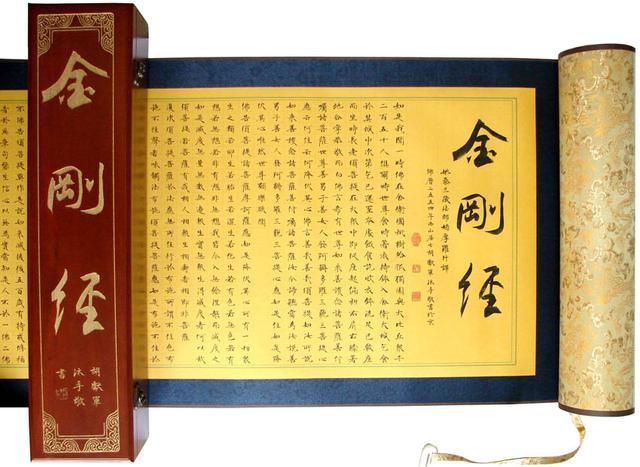 金剛經
姚秦三藏法師鳩摩羅什譯
佛曆二五五四年西山居士胡獻軍沐手敬書於京
如是我聞一時佛在舍衛國祇樹給孤獨園與大比丘眾千
二百五十人俱爾時世尊食時著衣持鉢入舍衛大城乞食
於其城中次第乞已還至本處飯食訖收衣鉢洗足已敷座
而坐時長老須菩提在大眾中即從座起偏袒右肩右膝著
地合掌恭敬而白佛言希有世尊如來善護念諸菩薩善付
囑諸菩薩世尊善男子善女人發阿耨多羅三藐三菩提心
應云何住云何降伏其心佛言善哉善哉須菩提如汝所說
如來善護念諸菩薩善付囑諸菩薩汝今諦聽當為汝說善
男子善女人發阿耨多羅三藐三菩提心應如是住如是降
伏其心唯然世尊願樂欲聞
佛告須菩提諸菩薩摩訶薩應如是降伏其心所有一切眾
生之類若卵生若胎生若濕生若化生若有色若無色若有
想若無想若非有想非無想我皆令入無餘涅槃而滅度之
如是滅度無量無數無邊眾生實無眾生得滅度者何以故
須菩提若菩薩有我相人相眾生相壽者相即非菩薩
復次須菩提菩薩於法應無所住行於布施所謂不住色布
施不住聲香味觸法布施須菩提菩薩應如是布
金剛經
胡獻軍
沐手敬
書
不佛告須菩提莫作是說如來滅後後五百歲有持戒修福
者於此章句能生信心以此為實當知是人不於一佛二佛